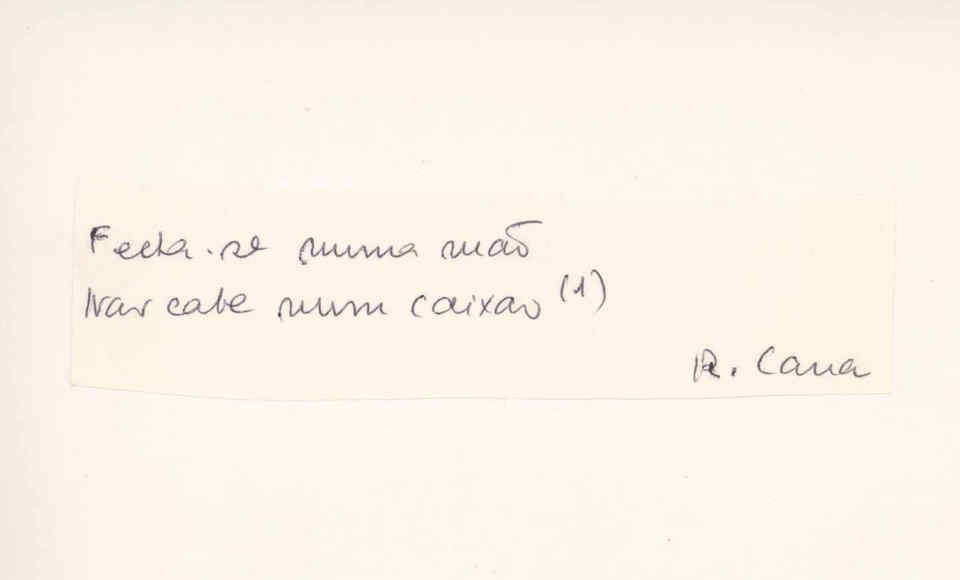 Fecha-se numa mão
Não cabe num caixão (1)
R. Cana